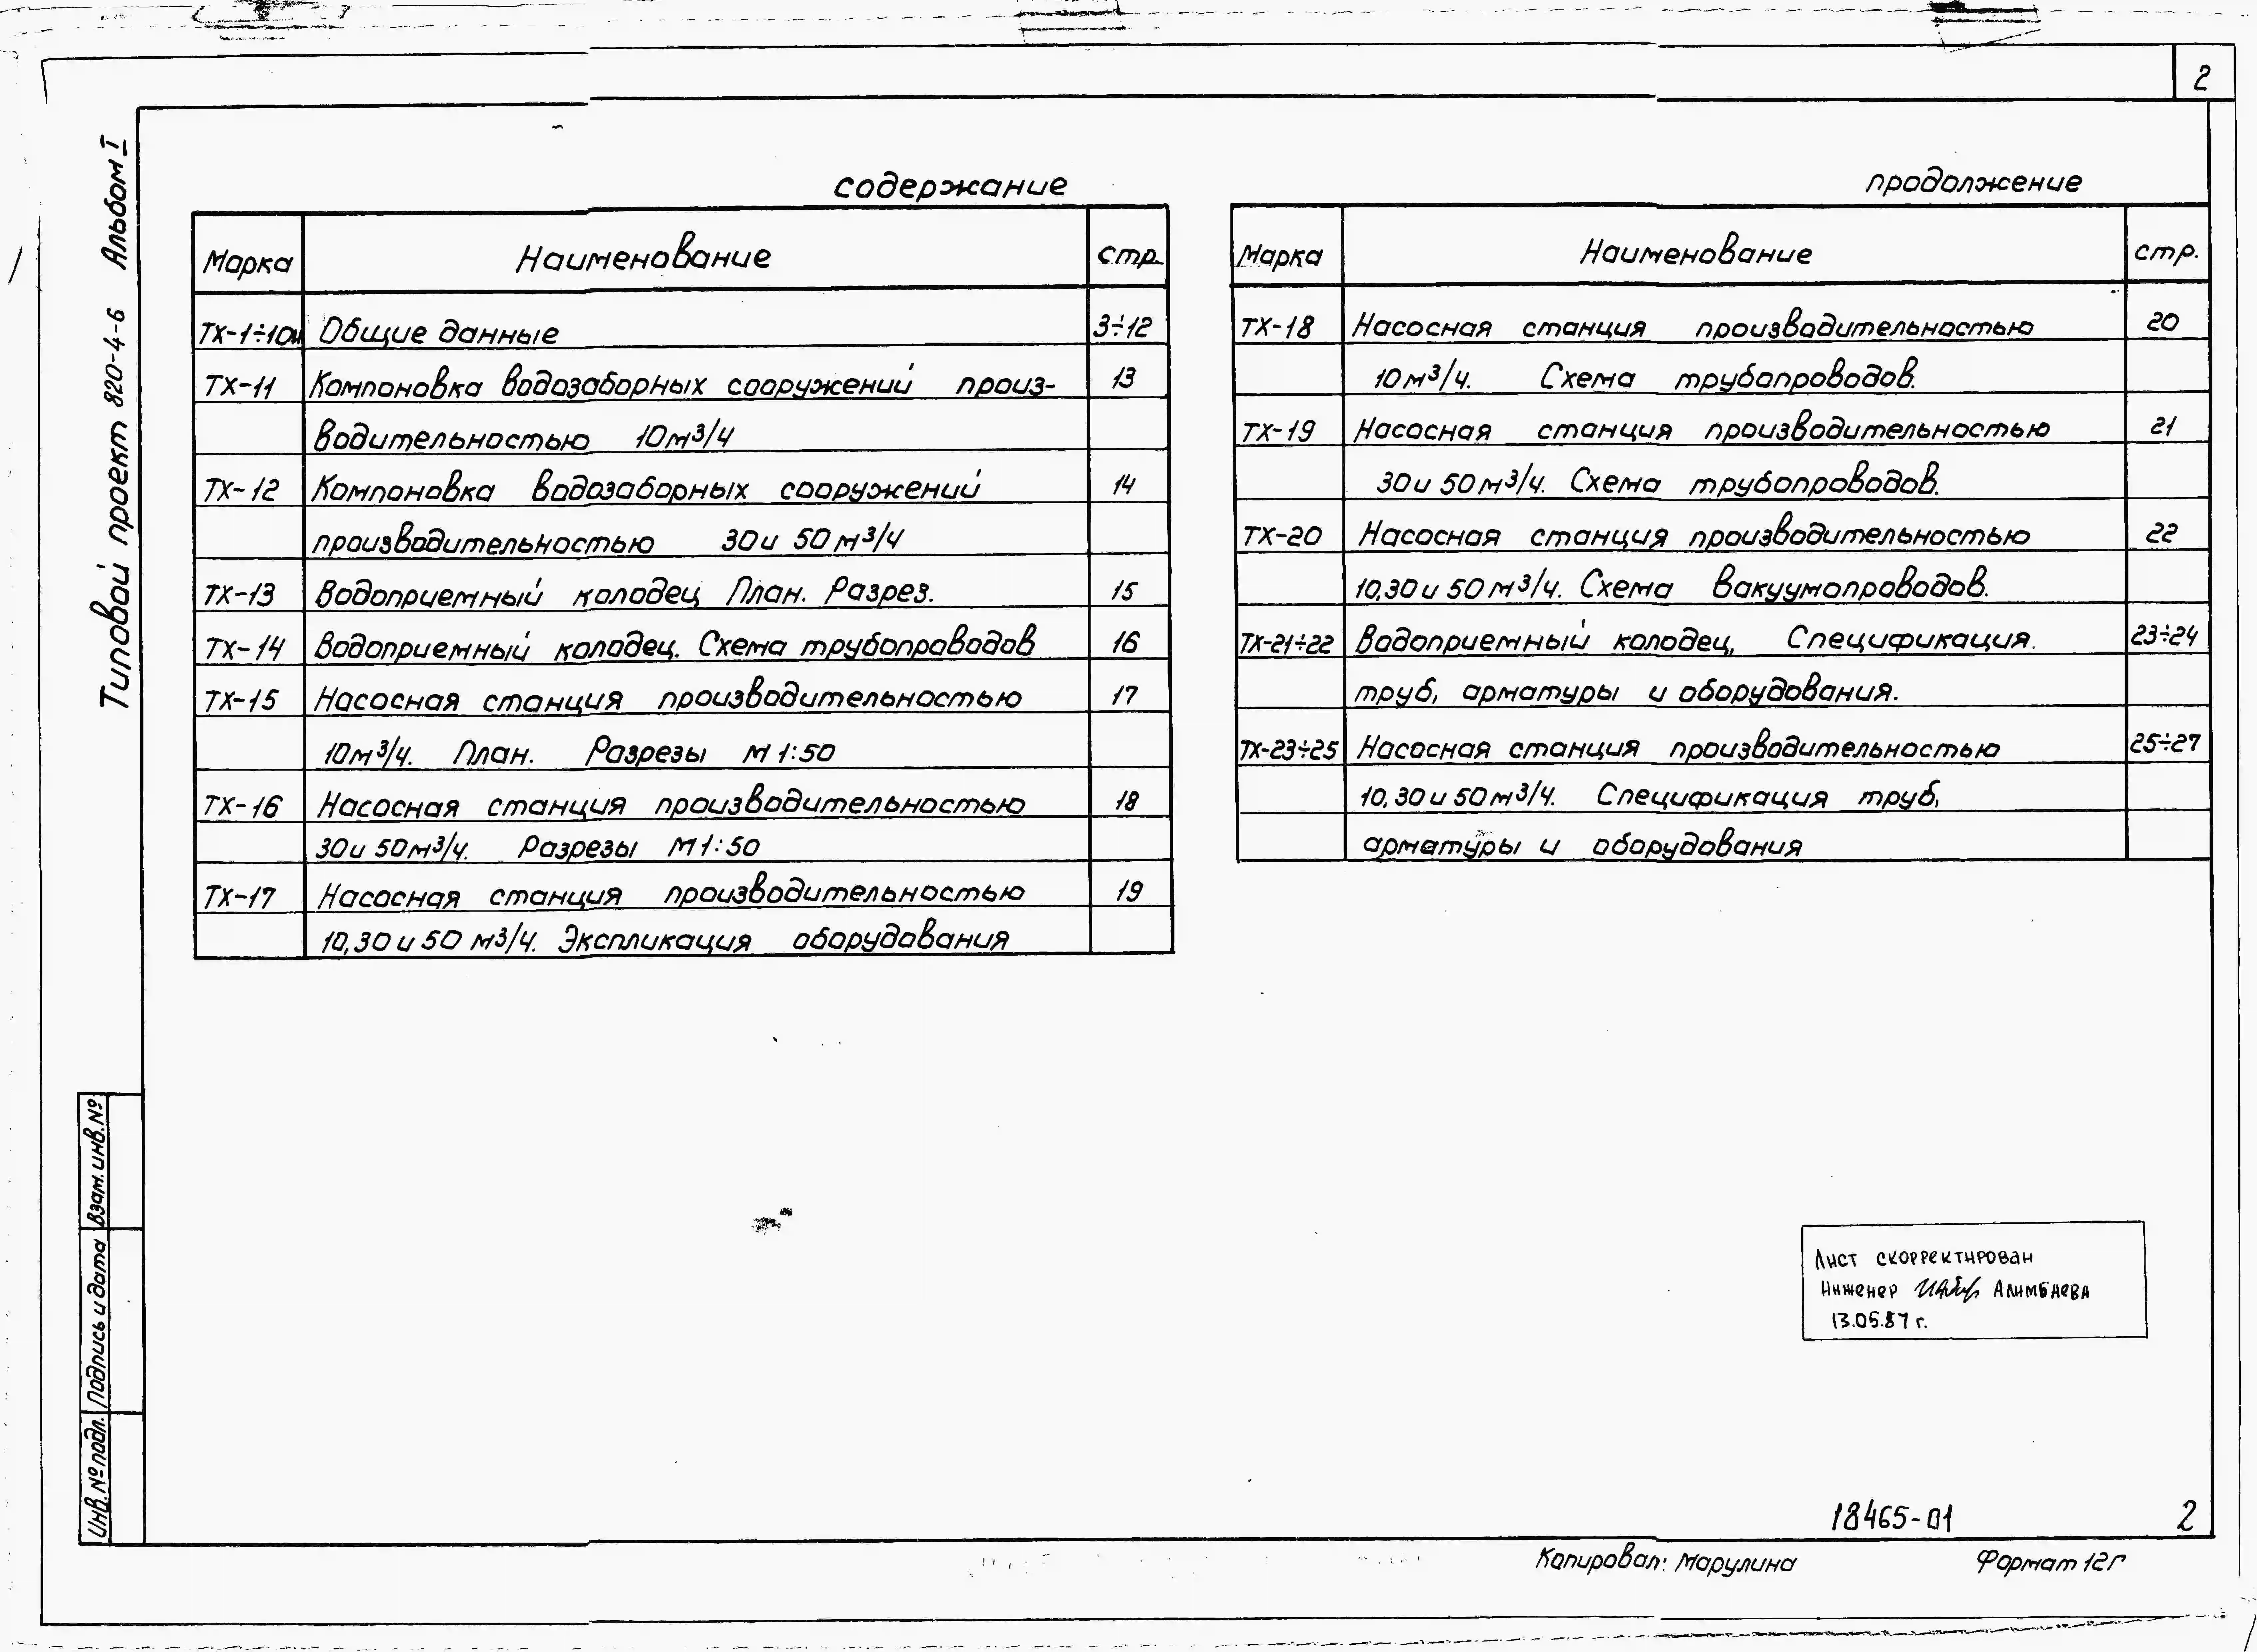 2
Типовой проект 820-4-6 Альбом I
содержание
Марка Наименование стр.
ТХ-1÷10 Общие данные 3÷12
ТХ-11 Компоновка водозаборных сооружений произ- 13
водительностью 10м³/ч
ТХ-12 Компоновка водозаборных сооружений 14
производительностью 30и 50м³/ч
ТХ-13 Водоприемный колодец План. Разрез. 15
ТХ-14 Водоприемный колодец. Схема трубопроводов 16
ТХ-15 Насосная станция производительностью 17
10м³/ч. План. Разрезы М 1:50
ТХ-16 Насосная станция производительностью 18
30и 50м³/ч. Разрезы М1:50
ТХ-17 Насосная станция производительностью 19
10,30 и 50 м³/ч. Экспликация оборудования
продолжение
Марка Наименование стр.
ТХ-18 Насосная станция производительностью 20
10м³/ч. Схема трубопроводов.
ТХ-19 Насосная станция производительностью 21
30и 50м³/ч. Схема трубопроводов.
ТХ-20 Насосная станция производительностью 22
10,30 и 50м³/ч. Схема вакуумопроводов.
ТХ-21÷22 Водоприемный колодец, Спецификация. 23÷24
труб, арматуры и оборудования.
ТХ-23÷25 Насосная станция производительностью 25÷27
10,30 и 50м³/ч. Спецификация труб,
арматуры и оборудования
Взам.инв.№
Подпись и дата
Инв.№подл.
Лист скорректирован
Инженер Алимбаева
13.05.87 г.
18465-01 2
Копировал: Марулина Формат 12Г